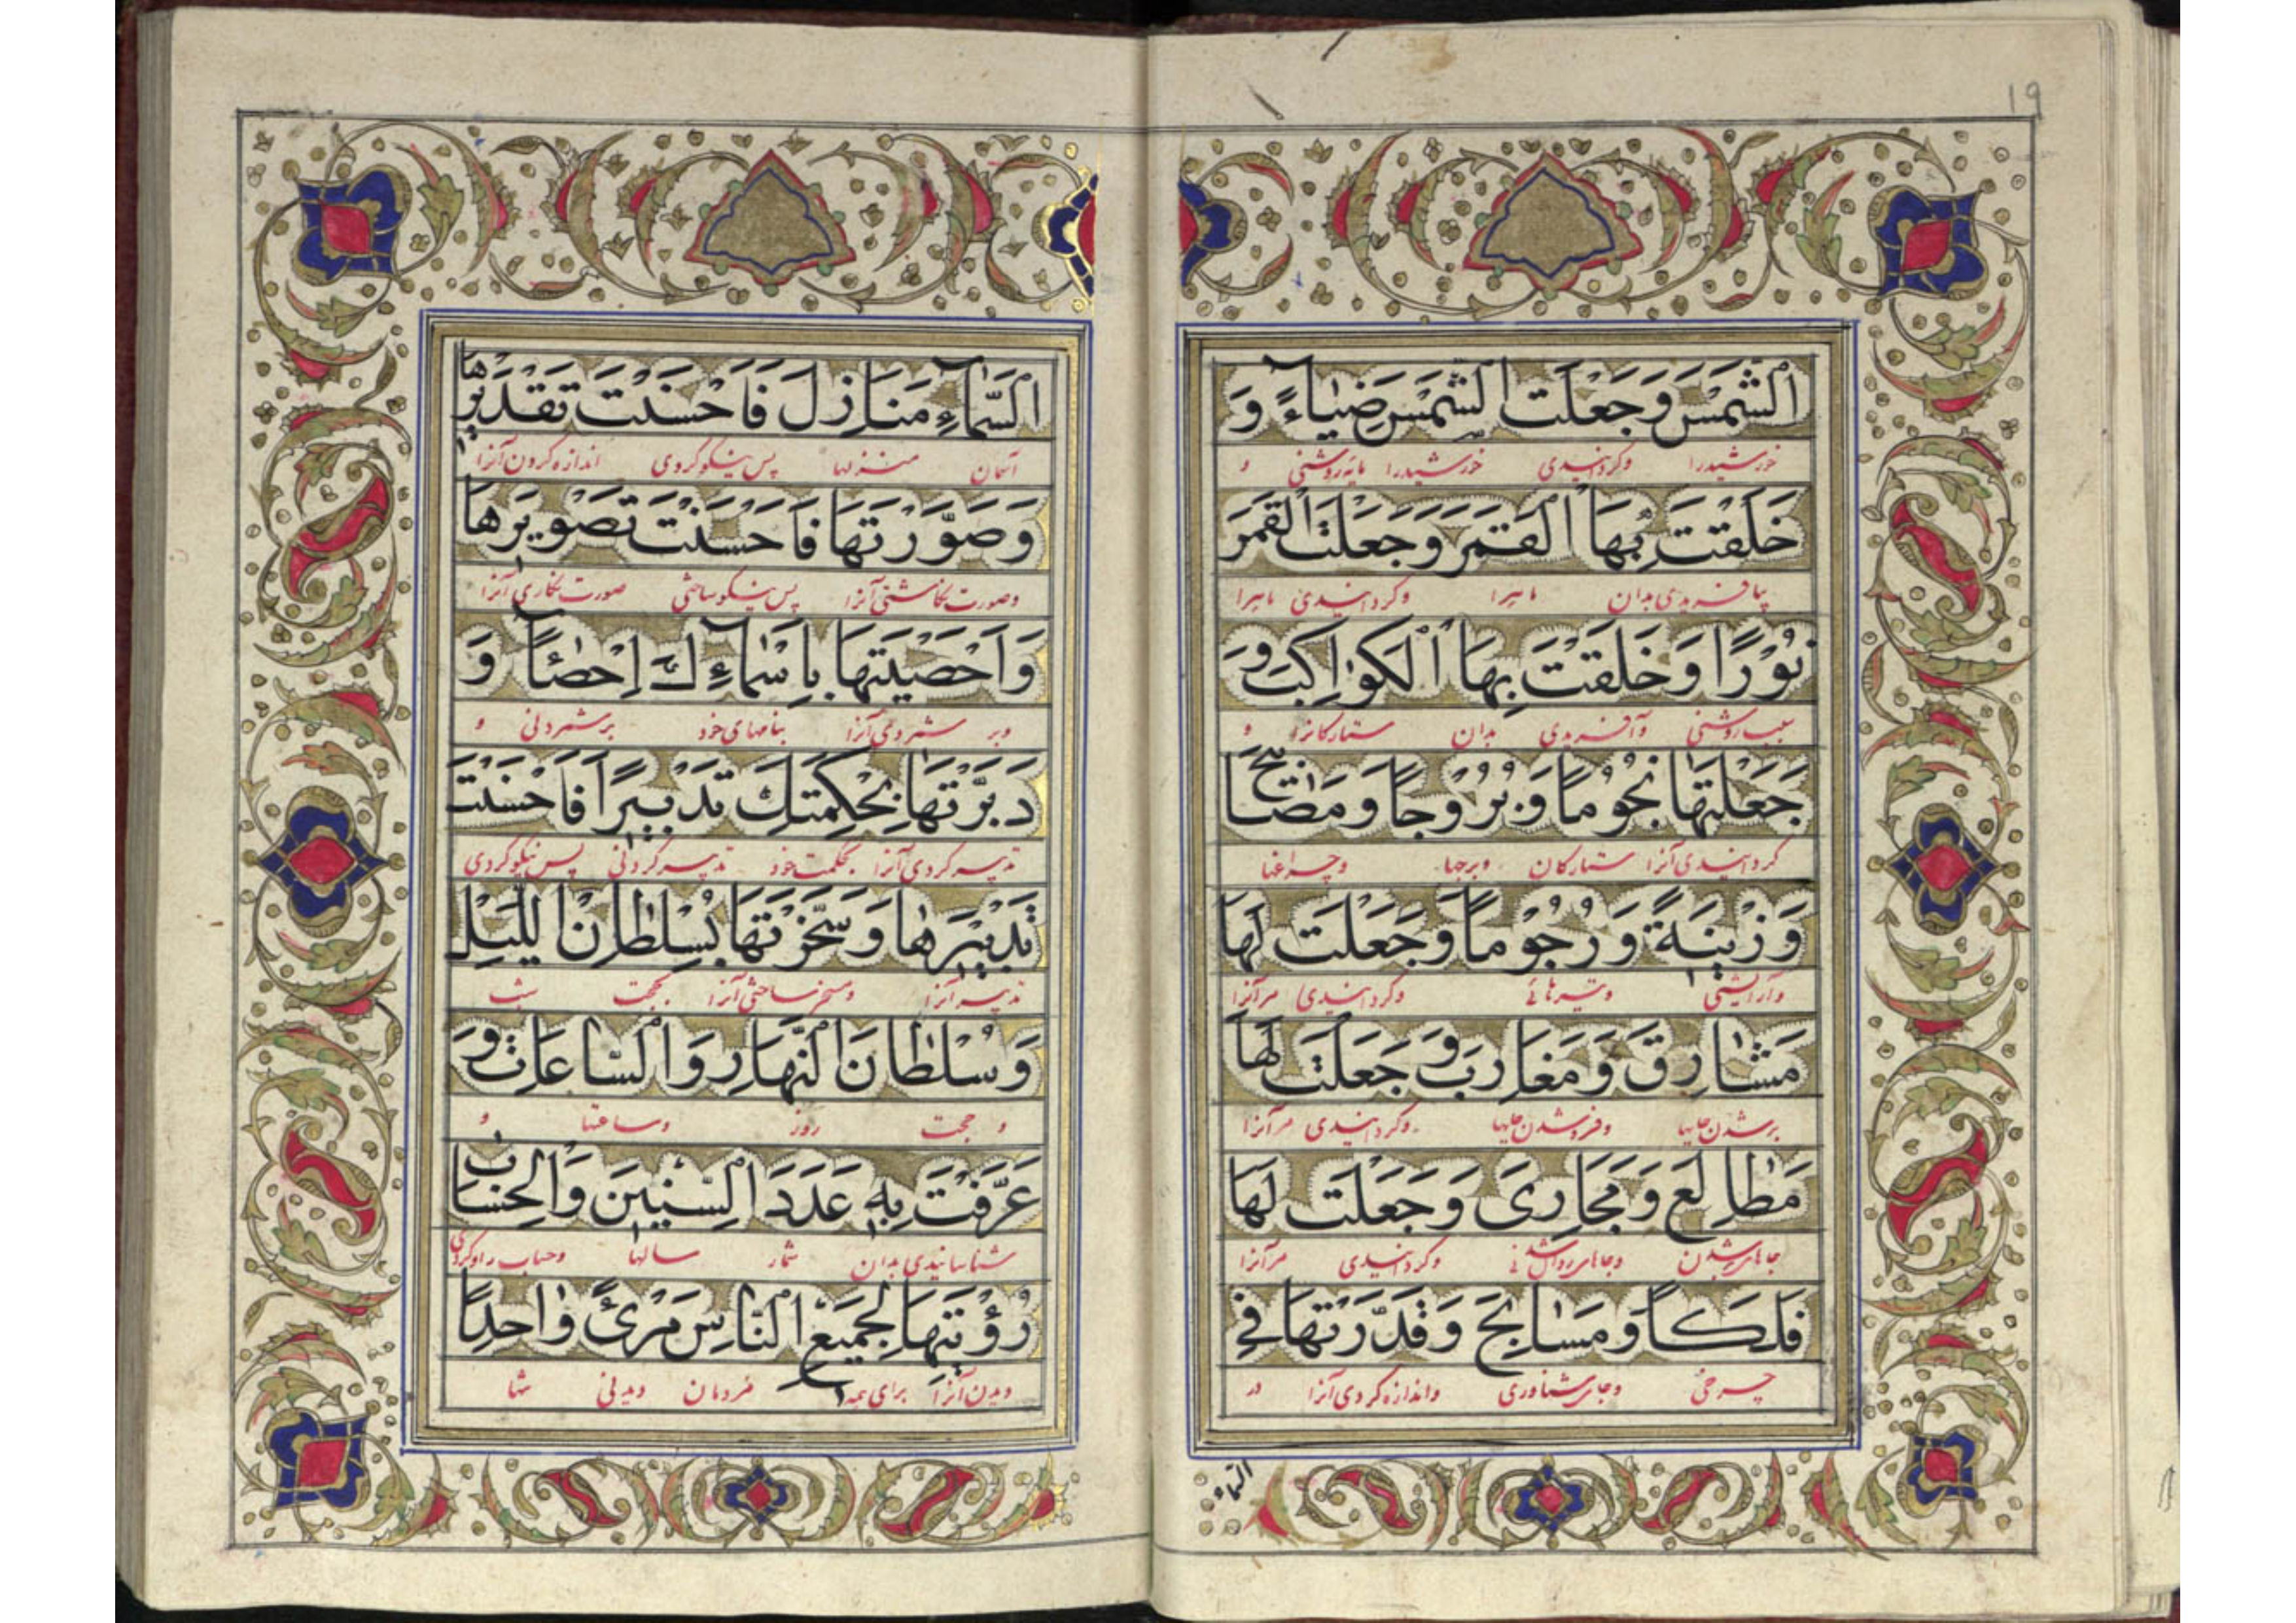 19
اَلشَّمْسَ وَجَعَلْتَ الشَّمْسَ ضِيٰاءً وَ
خورشیدرا وکردانیدی خورشیدرا مایه روشنی و
خَلَقْتَ بِهَا الْقَمَرَ وَجَعَلْتَ الْقَمَرَ
بیافریدی بدان ماهرا وکردانیدی ماهرا
نُوْرًا وَخَلَقْتَ بِهَا الْكَوٰاكِبَ وَ
سبب روشنی وآفریدی بدان ستارکانرا و
جَعَلْتَهَا نُجُوْمًا وَبُرُوْجًا وَمَصٰابِيْحَ
کردانیدی آنرا ستارکان وبرجها وچراغها
وَزِيْنَةً وَرُجُوْمًا وَجَعَلْتَ لَهَا
وآرایشی وتیرهائی وکردانیدی مرآنرا
مَشٰارِقَ وَمَغٰارِبَ وَجَعَلْتَ لَهَا
برشدن جایها وفروشدن جایها وکردانیدی مرآنرا
مَطٰالِعَ وَمَجٰارِىَ وَجَعَلْتَ لَهَا
وکردانیدی مرآنرا
فَلَكًا وَمَسٰابِحَ وَقَدَّرْتَهَا فِي
چرخی وجای شناوری واندازه کردی آنرا در
السّماء
السَّمٰاءِ مَنَازِلَ فَاَحْسَنْتَ تَقْدِيْرَهَا
آسمان منزلها پس نیکو کردی اندازه کردن آنرا
وَصَوَّرْتَهَا فَاَحْسَنْتَ تَصْوِيْرَهَا
وصورت نکاشتی آنرا پس نیکو ساختی صورت نکاری آنرا
وَاَحْصَيْتَهَا بِاَسْمٰاءِكَ اِحْصٰاءً وَ
وبر شمردی آنرا بنامهای خود برشمردنی و
دَبَّرْتَهَا بِحِكْمَتِكَ تَدْبِيْرًا فَاَحْسَنْتَ
تدبیر کردی آنرا بحکمت خود تدبیر کردنی پس نیکو کردی
تَدْبِيْرَهَا وَسَخَّرْتَهَا بِسُلْطٰانِ اللَّيْلِ
تدبیر آنرا ومسخر ساختی آنرا بحجت شب
وَسُلْطٰانِ النَّهٰارِ وَالسّٰاعٰاتِ وَ
و حجت روز وساعتها و
عَرَّفْتَ بِهٖ عَدَدَ السِّنِيْنَ وَالْحِسٰابَ
شناسانیدی بدان شمار سالها وحساب را وکردی
رُؤْيَتَهَا لِجَمِيْعِ النَّاسِ مَرْئً وٰاحِدًا
دیدن آنرا برای همه مردمان دیدنی